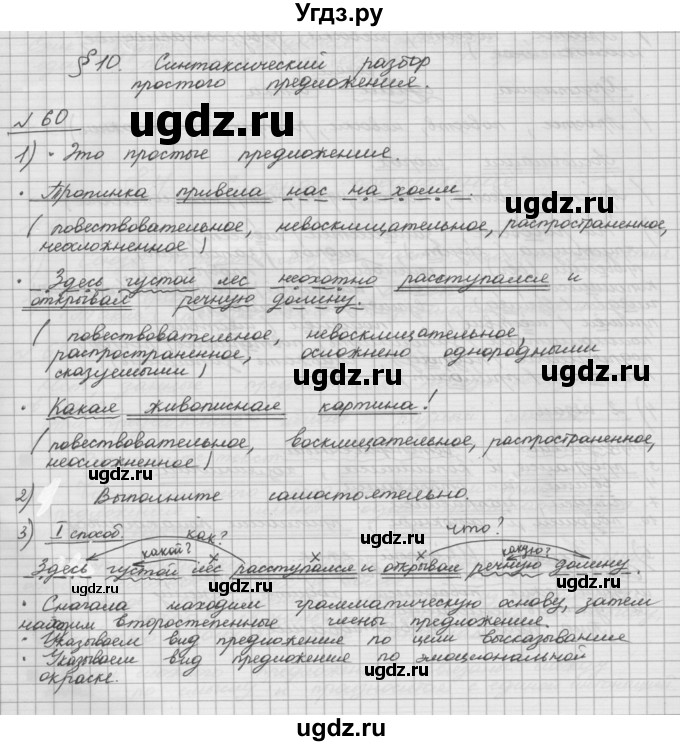 Угдз.ру
§ 10. Синтаксический разбор
простого предложения.
№ 60
ugdz.ru
1) • Это простые предложения.
• Тропинка привела нас на холм.
ugdz.ru
ugdz.ru
(повествовательное, невосклицательное, распространенное,
неосложненное)
• Здесь густой лес неохотно расступался и
открывал речную долину.
ugdz.ru
(повествовательное, невосклицательное,
распространенное, осложнено однородными
сказуемыми)
ugdz.ru
ugdz.ru
• Какая живописная картина!
(повествовательное, восклицательное, распространенное,
неосложненное)
ugdz.ru
2) Выполните самостоятельно.
ugdz.ru
3) I способ. как? что?
какой? какую?
Здесь густой лес расступался и открывал речную долину.
• Сначала находим грамматическую основу, затем
находим второстепенные члены предложения.
ugdz.ru
• Указываем вид предложения по цели высказывания
• Указываем вид предложения по эмоциональной
окраске.
ugdz.ru
ugdz.ru
ugdz.ru